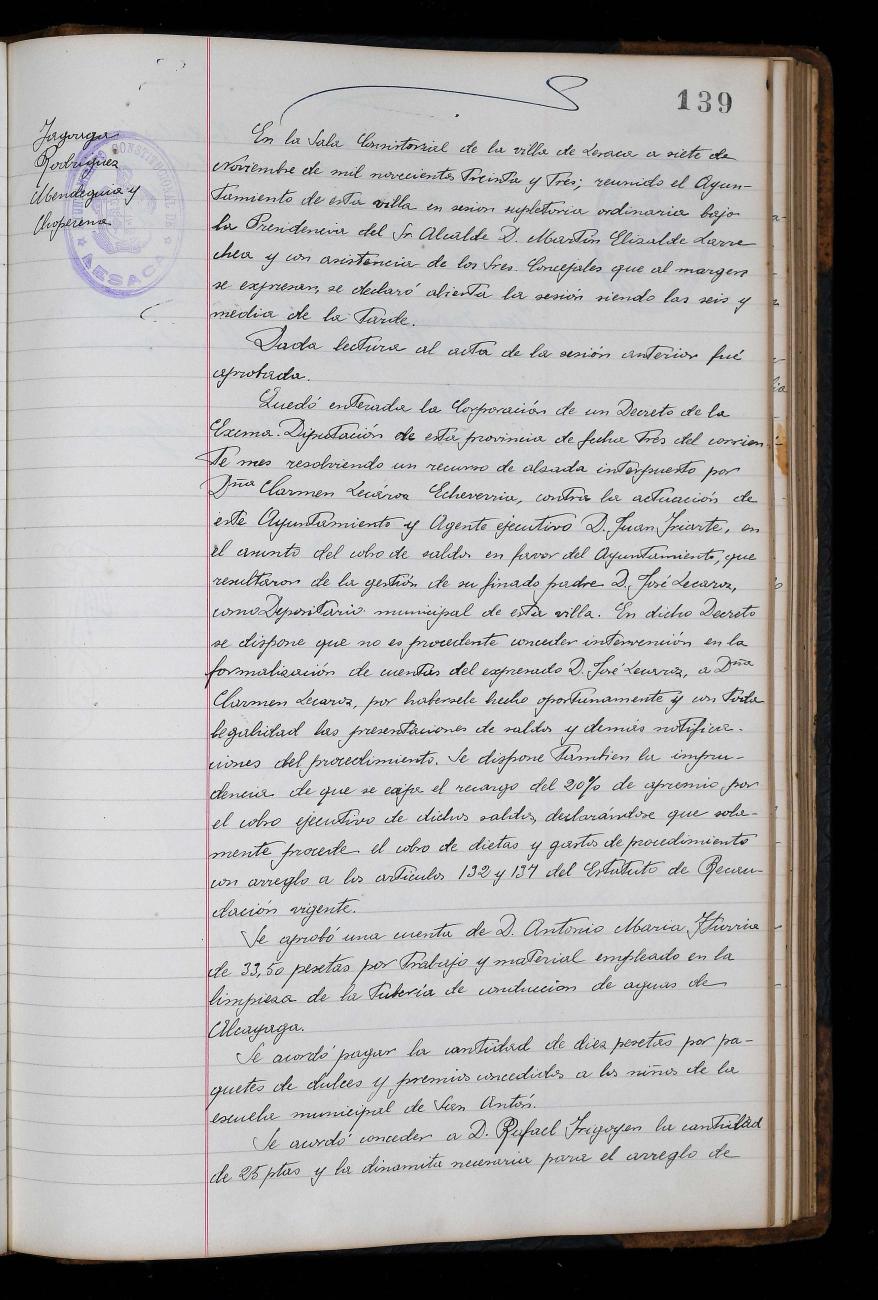 139
Jagoaga
Rodriguez
Mendeguia y
Choperena
AYUNTAMIENTO CONSTITUCIONAL DE
LESACA
En la Sala Consistorial de la villa de Lesaca a siete de
Noviembre de mil novecientos Treinta y Tres; reunido el Ayun-
Tamiento de esta villa en sesion supletoria ordinaria bajo
la Presidencia del Sr. Alcalde D. Martin Elizalde Larre
chea y con asistencia de los Sres. Concejales que al margen
se expresan, se declaró abierta la sesión siendo las seis y
media de la Tarde.
Dada lectura al acta de la sesión anterior fué
aprobada.
Quedó enterada la Corporación de un Decreto de la
Excma. Diputación de esta provincia de fecha Tres del corrien-
Te mes resolviendo un recurso de alzada interpuesto por
Dña Carmen Lecároz Echeverria, contra la actuación de
este Ayuntamiento y Agente ejecutivo D. Juan Iriarte, en
el asunto del cobro de saldos en favor del Ayuntamiento, que
resultaron de la gestión de su finado padre D. José Lecaroz,
como Depositario municipal de esta villa. En dicho Decreto
se dispone que no es procedente conceder intervención en la
formalización de cuentas del expresado D. José Lecaroz, a Dña
Carmen Lecaroz, por habersele hecho oportunamente y con toda
legalidad las presentaciones de saldos y demás notifica-
ciones del procedimiento. Se dispone Tambien la impru-
dencia de que se exija el recargo del 20% de apremio por
el cobro ejecutivo de dichos saldos, declarándose que sola-
mente procede el cobro de dietas y gastos de procedimiento
con arreglo a los articulos 132 y 137 del Estatuto de Recau-
dación vigente.
Se aprobó una cuenta de D. Antonio Maria Iturria
de 33,50 pesetas por Trabajo y material empleado en la
limpieza de la Tuberia de conduccion de aguas de
Alcayaga.
Se acordó pagar la cantidad de diez pesetas por pa-
quetes de dulces y premios concedidos a los niños de la
escuela municipal de San Antón.
Se acordó conceder a D. Rafael Irigoyen la cantidad
de 25 ptas y la dinamita necesaria para el arreglo de